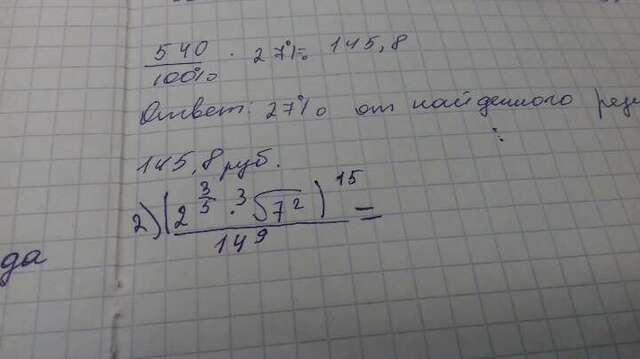 540/100% · 27% = 145,8
Ответ: 27% от найденного
145,8 руб.
2) (2^(3/5) · ³√7²)^15 / 14^9 =
да